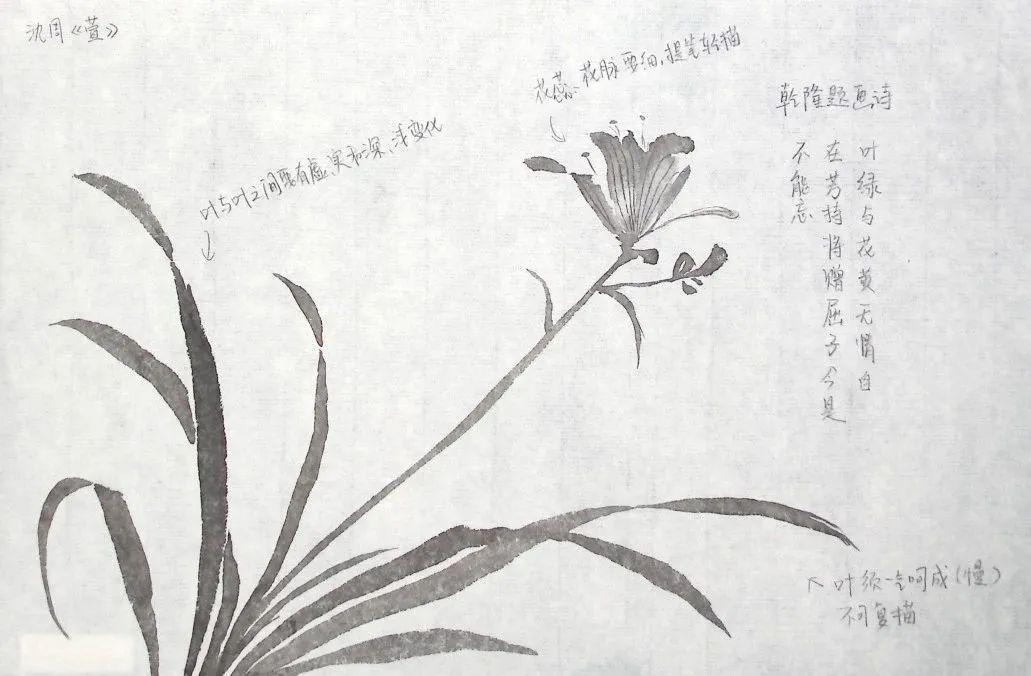 沈周《萱》
花蕊、花脉要细,提笔轻描
叶与叶之间要有虚、实和深、浅变化
乾隆题画诗
叶绿与花黄无情自
在芳持将赠屈子是
不能忘
叶须一气呵成(慢)
不可复描